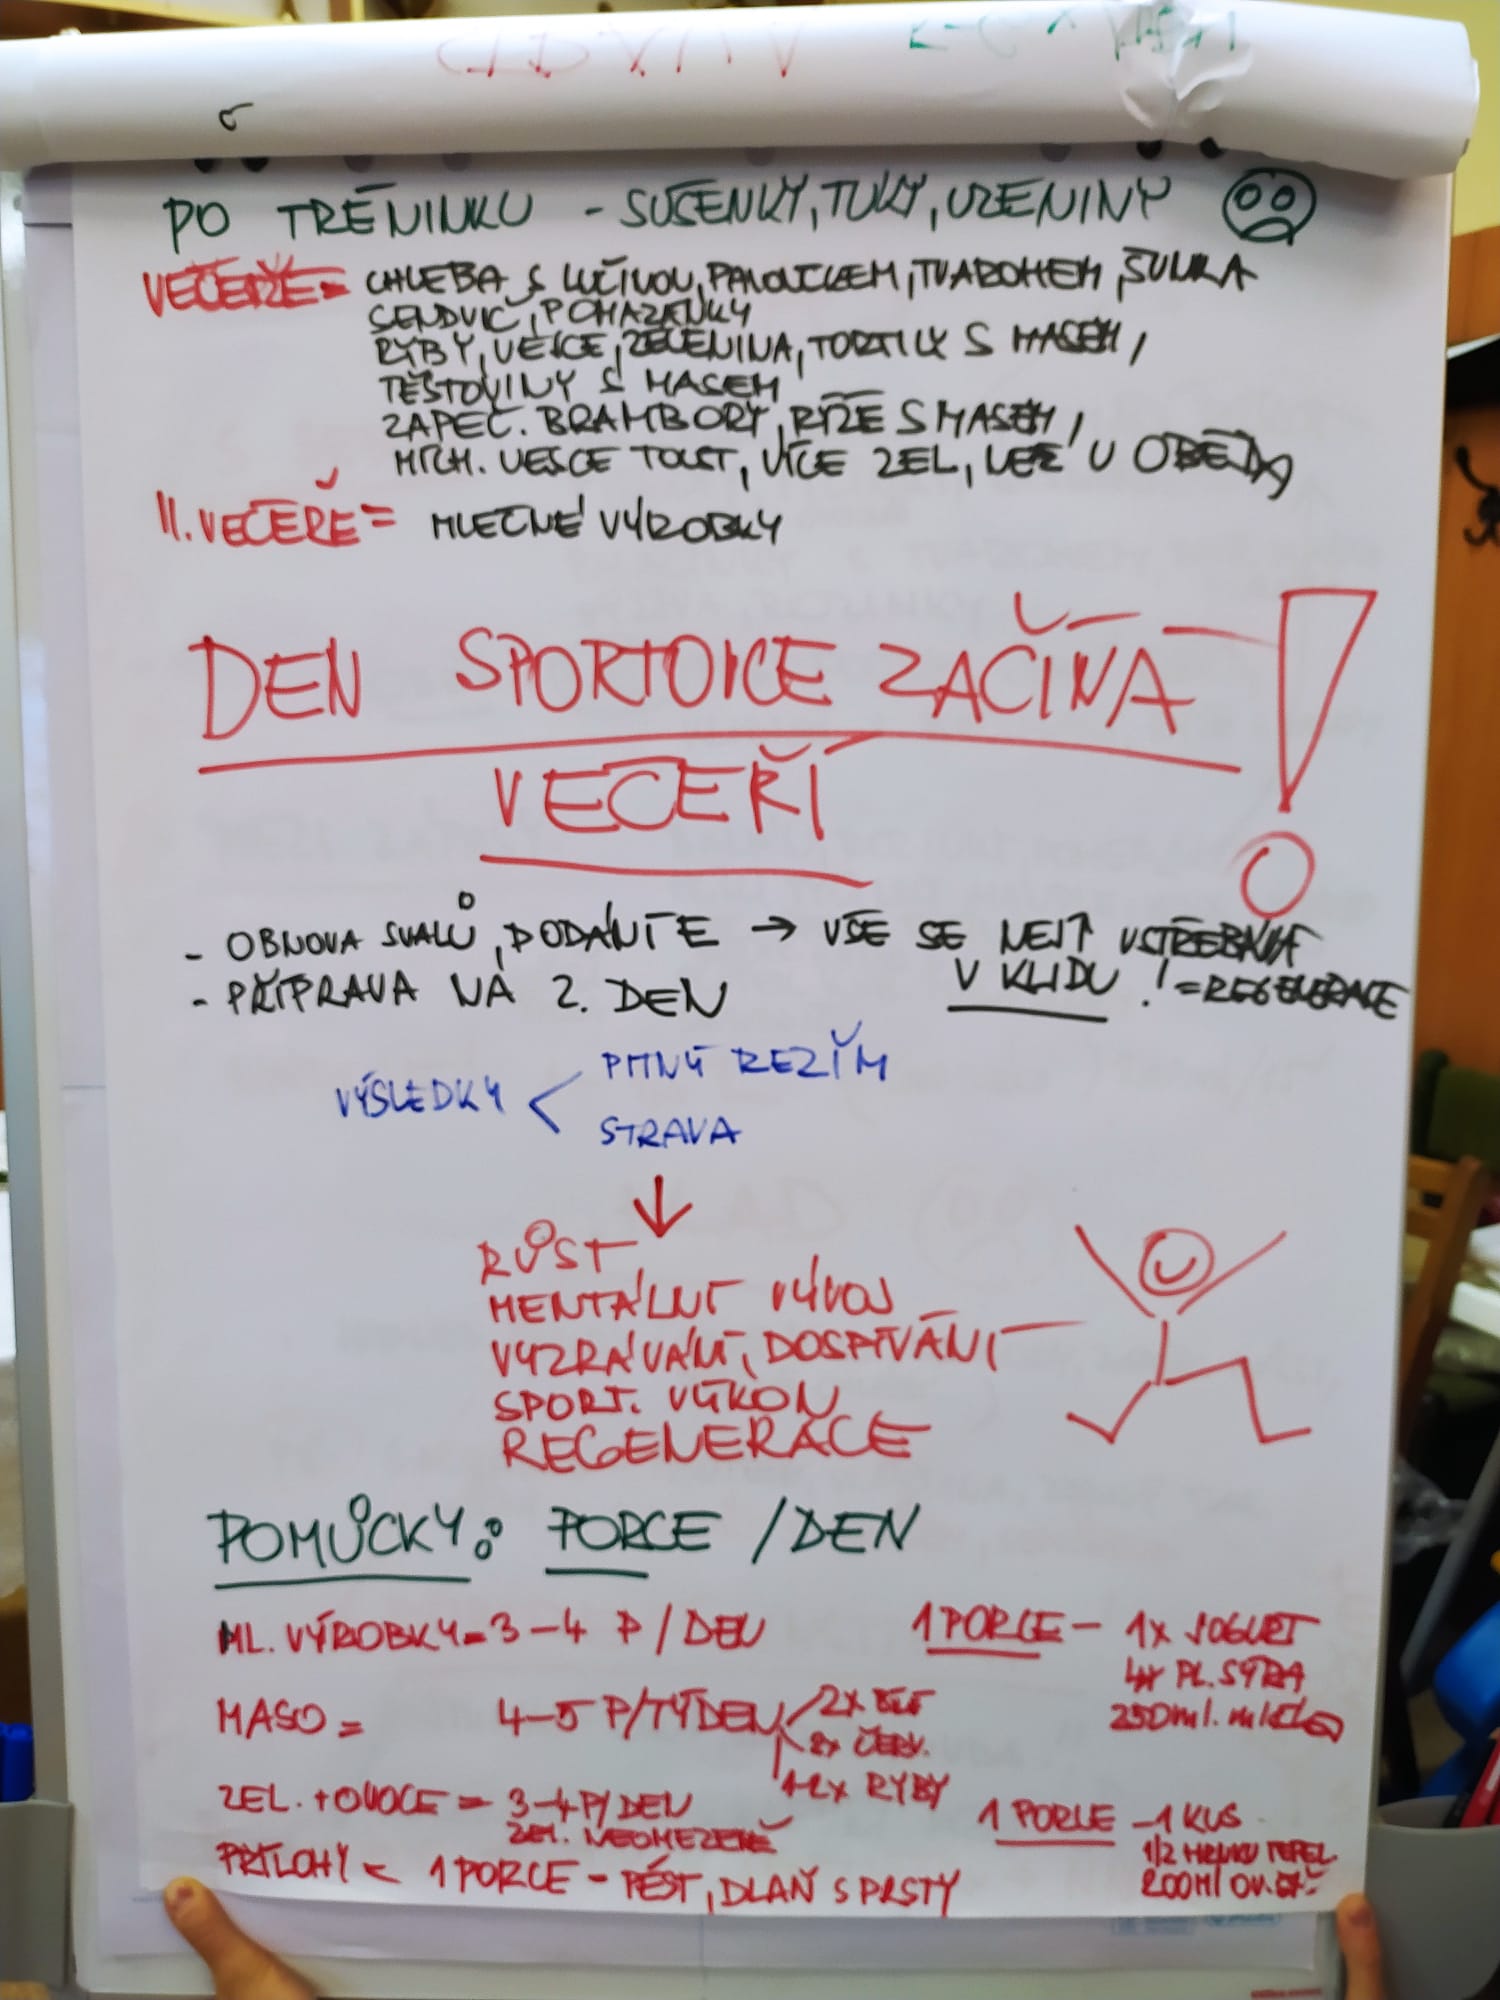 PO TRÉNINKU - SUŠENKY, TUKY, UZENINY
VEČEŘE = CHLEBA S LUČINOU, TVAROHEM, ŠUNKA
SENDVIČ, POMAZÁNKY
RYBY, VEJCE, ZELENINA, TORTILY S MASEM,
TĚSTOVINY S MASEM
ZAPEČ. BRAMBORY, RÝŽE S MASEM,
MÍCH. VEJCE TOUST, VÍCE ZEL, U OBĚDA
II. VEČEŘE = MLÉČNÉ VÝROBKY
DEN SPORTOVCE ZAČÍNÁ !
VEČEŘÍ
- OBNOVA SVALŮ, → VŠE SE NEJ VSTŘEBÁVÁ
- PŘÍPRAVA NA 2. DEN V KLIDU ! = REGENERACE
VÝSLEDKY < PITNÝ REŽIM
STRAVA
↓
RŮST
MENTÁLNÍ VÝVOJ
VYZRÁVÁNÍ, DOSPÍVÁNÍ
SPORT. VÝKON
REGENERACE
POMŮCKY: PORCE / DEN
ML. VÝROBKY = 3-4 P / DEN 1 PORCE - 1x JOGURT
4x PL. SÝRA
250ml. mléka
MASO = 4-5 P/TÝDEN 2x BÍLÉ
2x ČERV.
1-2x RYBY
ZEL. + OVOCE = 3-4 P/DEN 1 PORCE - 1 KUS
ZEL. NEOMEZENĚ
1/2 HRNKU TEPEL.
200ml
PŘÍLOHY < 1 PORCE - PĚST, DLAŇ S PRSTY